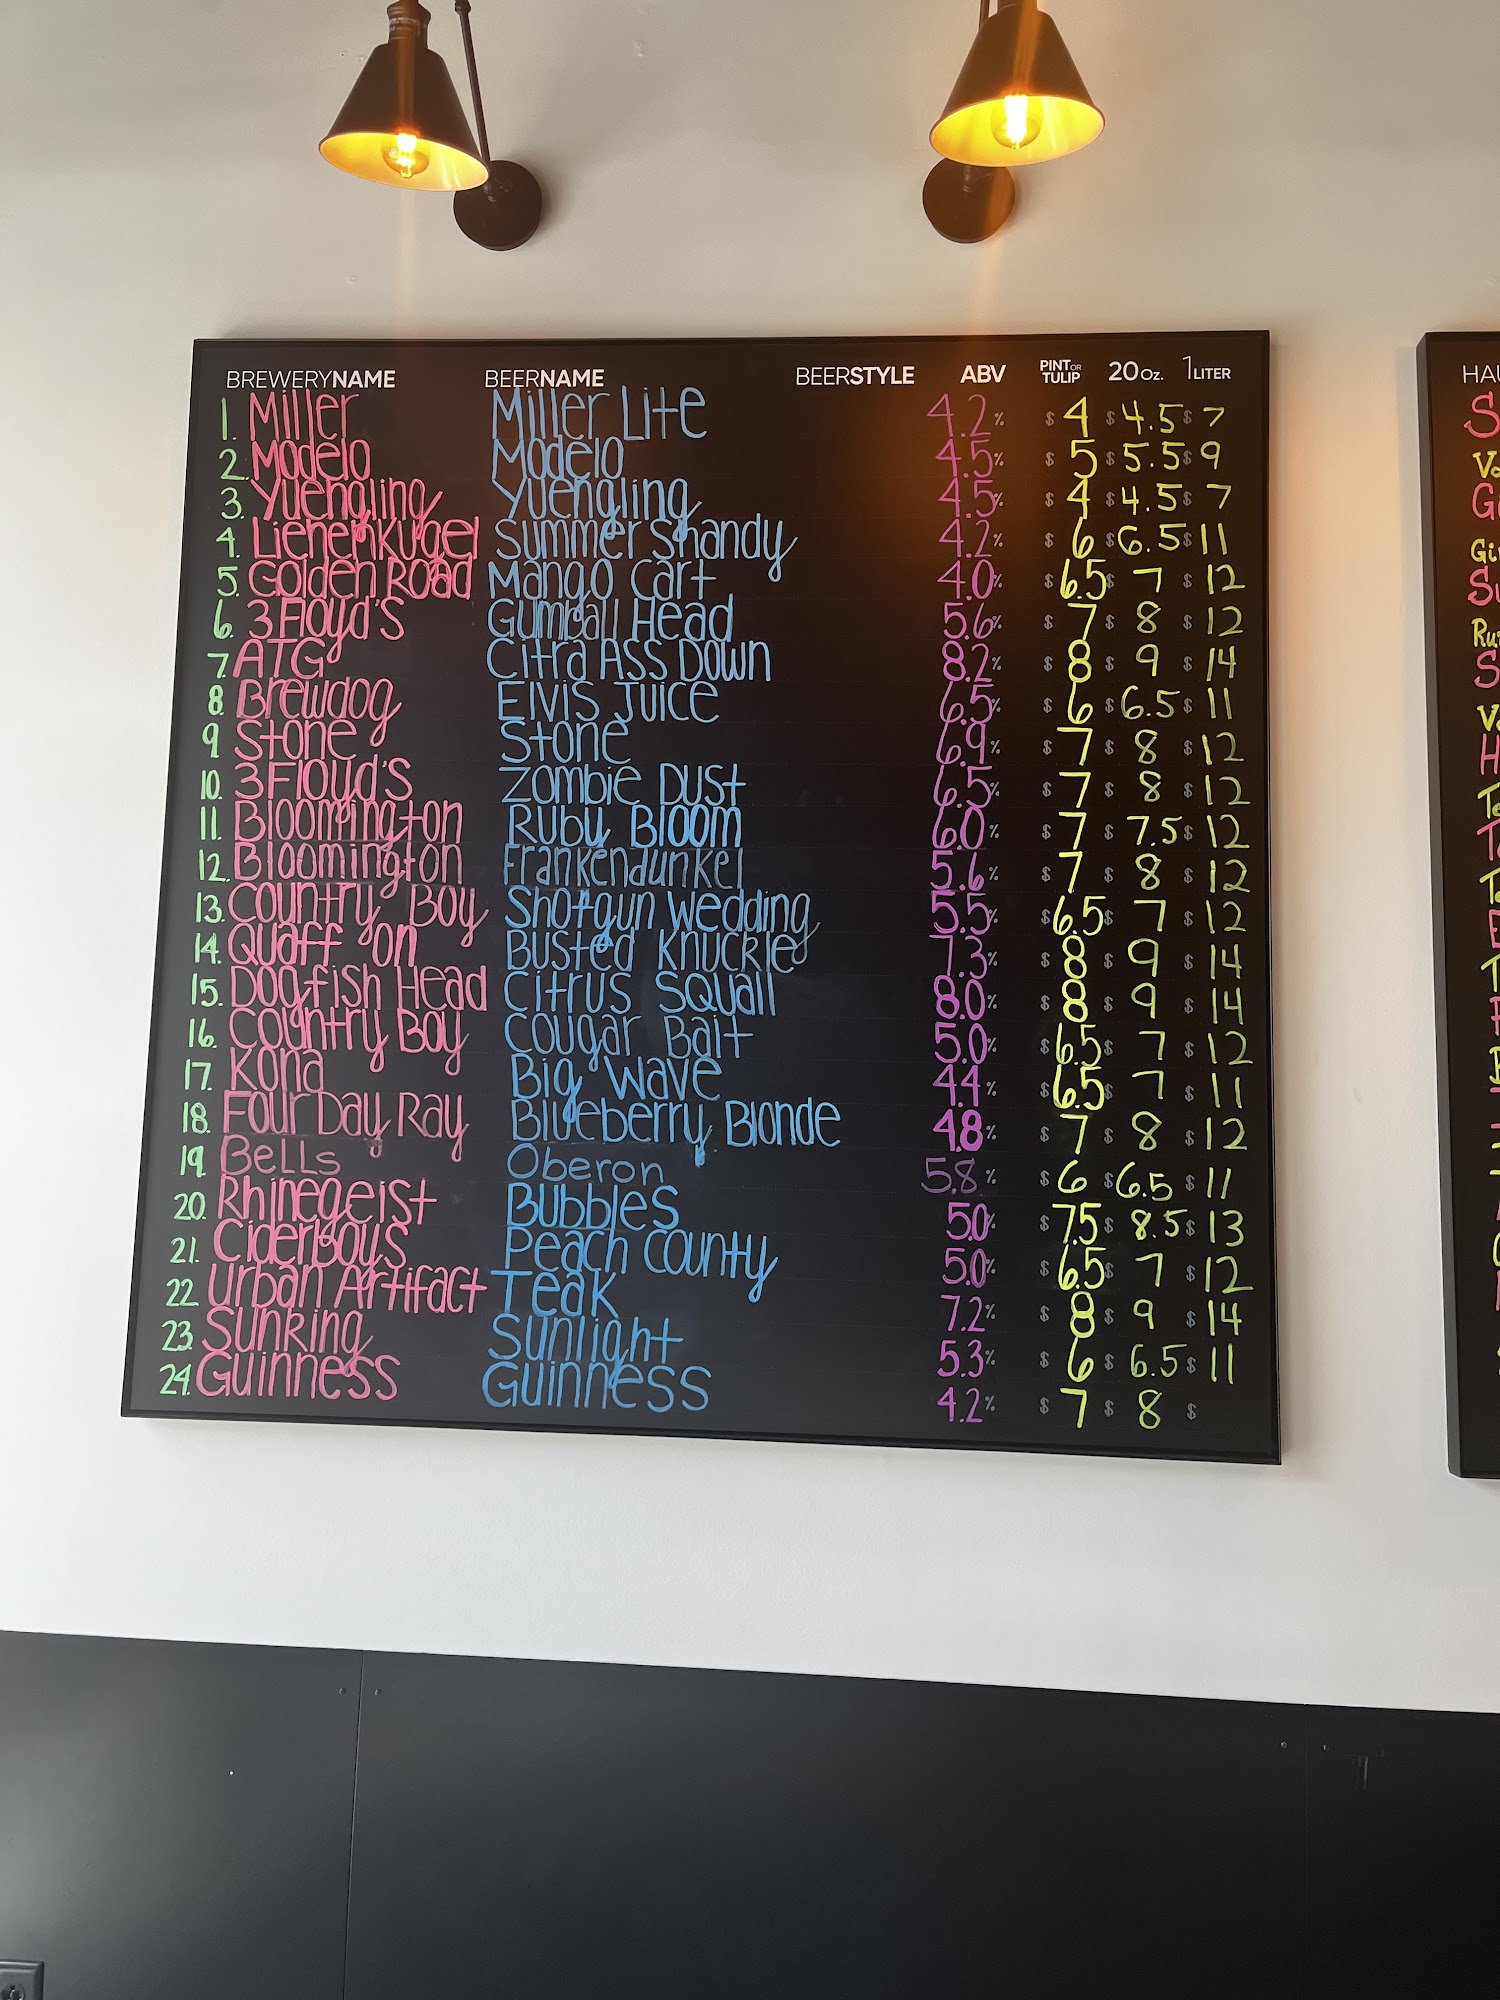 BREWERYNAME BEERNAME BEERSTYLE ABV PINT OR TULIP 20 OZ. 1 LITER
1. Miller Miller Lite 4.2% $4 $4.5 $7
2. Modelo Modelo 4.5% $5 $5.5 $9
3. Yuengling Yuengling 4.5% $4 $4.5 $7
4. Lienenkugel Summer Shandy 4.2% $6 $6.5 $11
5. Golden Road Mango Cart 4.0% $6.5 $7 $12
6. 3 Floyd's Gumball Head 5.6% $7 $8 $12
7. ATG Citra Ass Down 8.2% $8 $9 $14
8. Brewdog Elvis Juice 6.5% $6 $6.5 $11
9 Stone Stone 6.9% $7 $8 $12
10. 3 Floyd's Zombie Dust 6.5% $7 $8 $12
11. Bloomington Ruby Bloom 6.0% $7 $7.5 $12
12. Bloomington Frankendunkel 5.6% $7 $8 $12
13. Country Boy Shotgun Wedding 5.5% $6.5 $7 $12
14. Quaff on Busted Knuckle 7.3% $8 $9 $14
15. Dogfish Head Citrus Squall 8.0% $8 $9 $14
16. Country Boy Cougar Bait 5.0% $6.5 $7 $12
17. Kona Big Wave 4.4% $6.5 $7 $11
18. Four Day Ray Blueberry Blonde 4.8% $7 $8 $12
19. Bells Oberon 5.8% $6 $6.5 $11
20. Rhinegeist Bubbles 5.0% $7.5 $8.5 $13
21. Ciderboys Peach County 5.0% $6.5 $7 $12
22 Urban Artifact Teak 7.2% $8 $9 $14
23. Sunking Sunlight 5.3% $6 $6.5 $11
24. Guinness Guinness 4.2% $7 $8 $